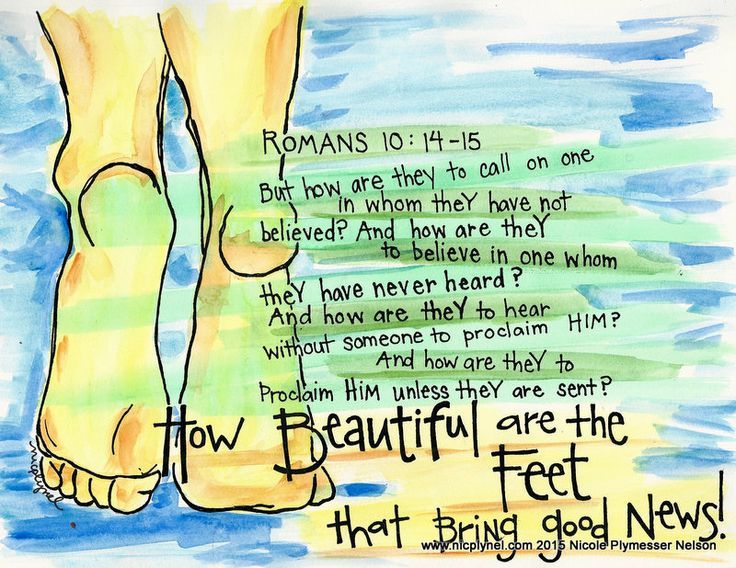 ROMANS 10:14-15
But how are they to call on one
in whom theY have not
believed? And how are theY
to believe in one whom
theY have never heard?
And how are theY to hear
without someone to proclaim HIM?
And how are theY to
Proclaim HiM unless theY are sent?
How Beautiful are the
Feet
that Bring good News!
nicplynel
www.nicplynel.com 2015 Nicole Plymesser Nelson